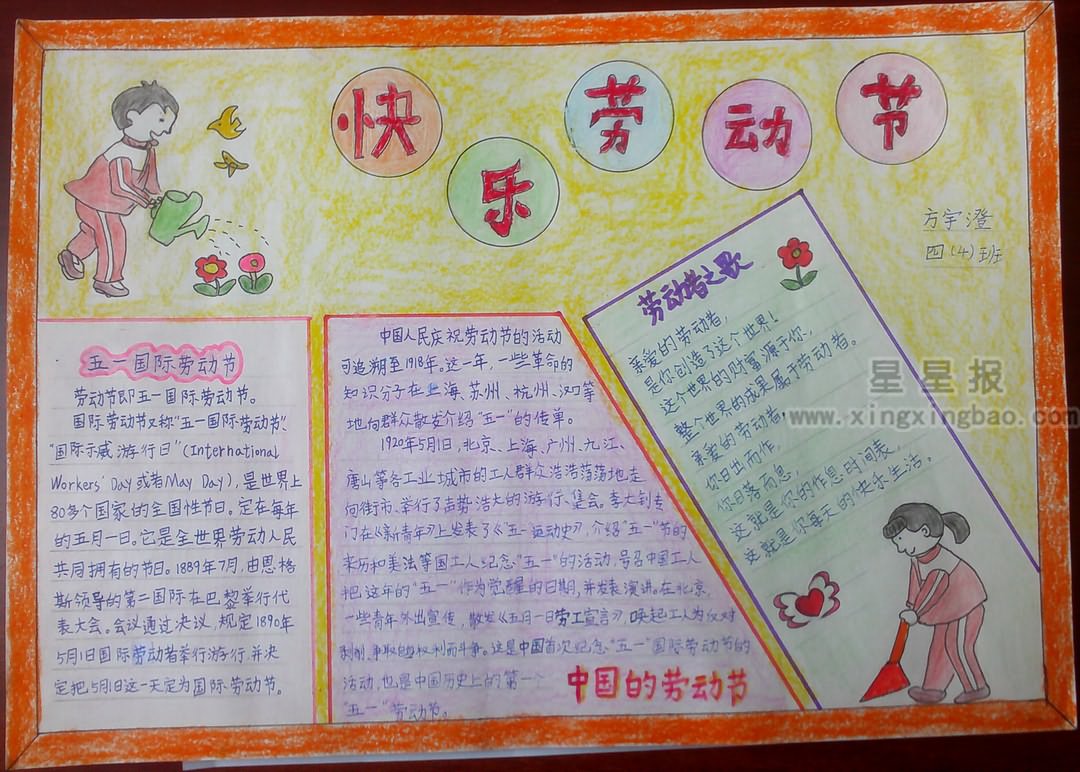 快乐劳动节
方宇澄
四（4）班
五一国际劳动节
劳动节即五一国际劳动节。
国际劳动节又称“五一国际劳动节”、
“国际示威游行日”（International
Workers' Day或者May Day），是世界上
80多个国家的全国性节日。定在每年
的五月一日。它是全世界劳动人民
共同拥有的节日。1889年7月，由恩格
斯领导的第二国际在巴黎举行代
表大会。会议通过决议，规定1890年
5月1日国际劳动者举行游行，并决
定把5月1日这一天定为国际劳动节。
中国人民庆祝劳动节的活动
可追溯至1918年。这一年，一些革命的
知识分子在上海、苏州、杭州、汉口等
地向群众散发介绍“五一”的传单。
1920年5月1日，北京、上海、广州、九江、
唐山等各工业城市的工人群众浩浩荡荡地走
向街市、举行了声势浩大的游行、集会。李大钊专
门在《新青年》上发表了《五一运动史》，介绍“五一”节的
来历和美法等国工人纪念“五一”的活动，号召中国工人
把这年的“五一”作为觉醒的日期，并发表演讲。在北京，
一些青年外出宣传，散发《五月一日劳工宣言》，唤起工人为反对
剥削、争取权利而斗争。这是中国首次纪念“五一”国际劳动节的
活动，也是中国历史上的第一个
“五一”劳动节。
中国的劳动节
劳动者之歌
亲爱的劳动者，
是你创造了这个世界！
这个世界的财富源于你，
整个世界的成果属于劳动者。
亲爱的劳动者，
你日出而作，
你日落而息，
这就是你的作息时间表，
这就是你每天的快乐生活。
星星报
www.xingxingbao.com